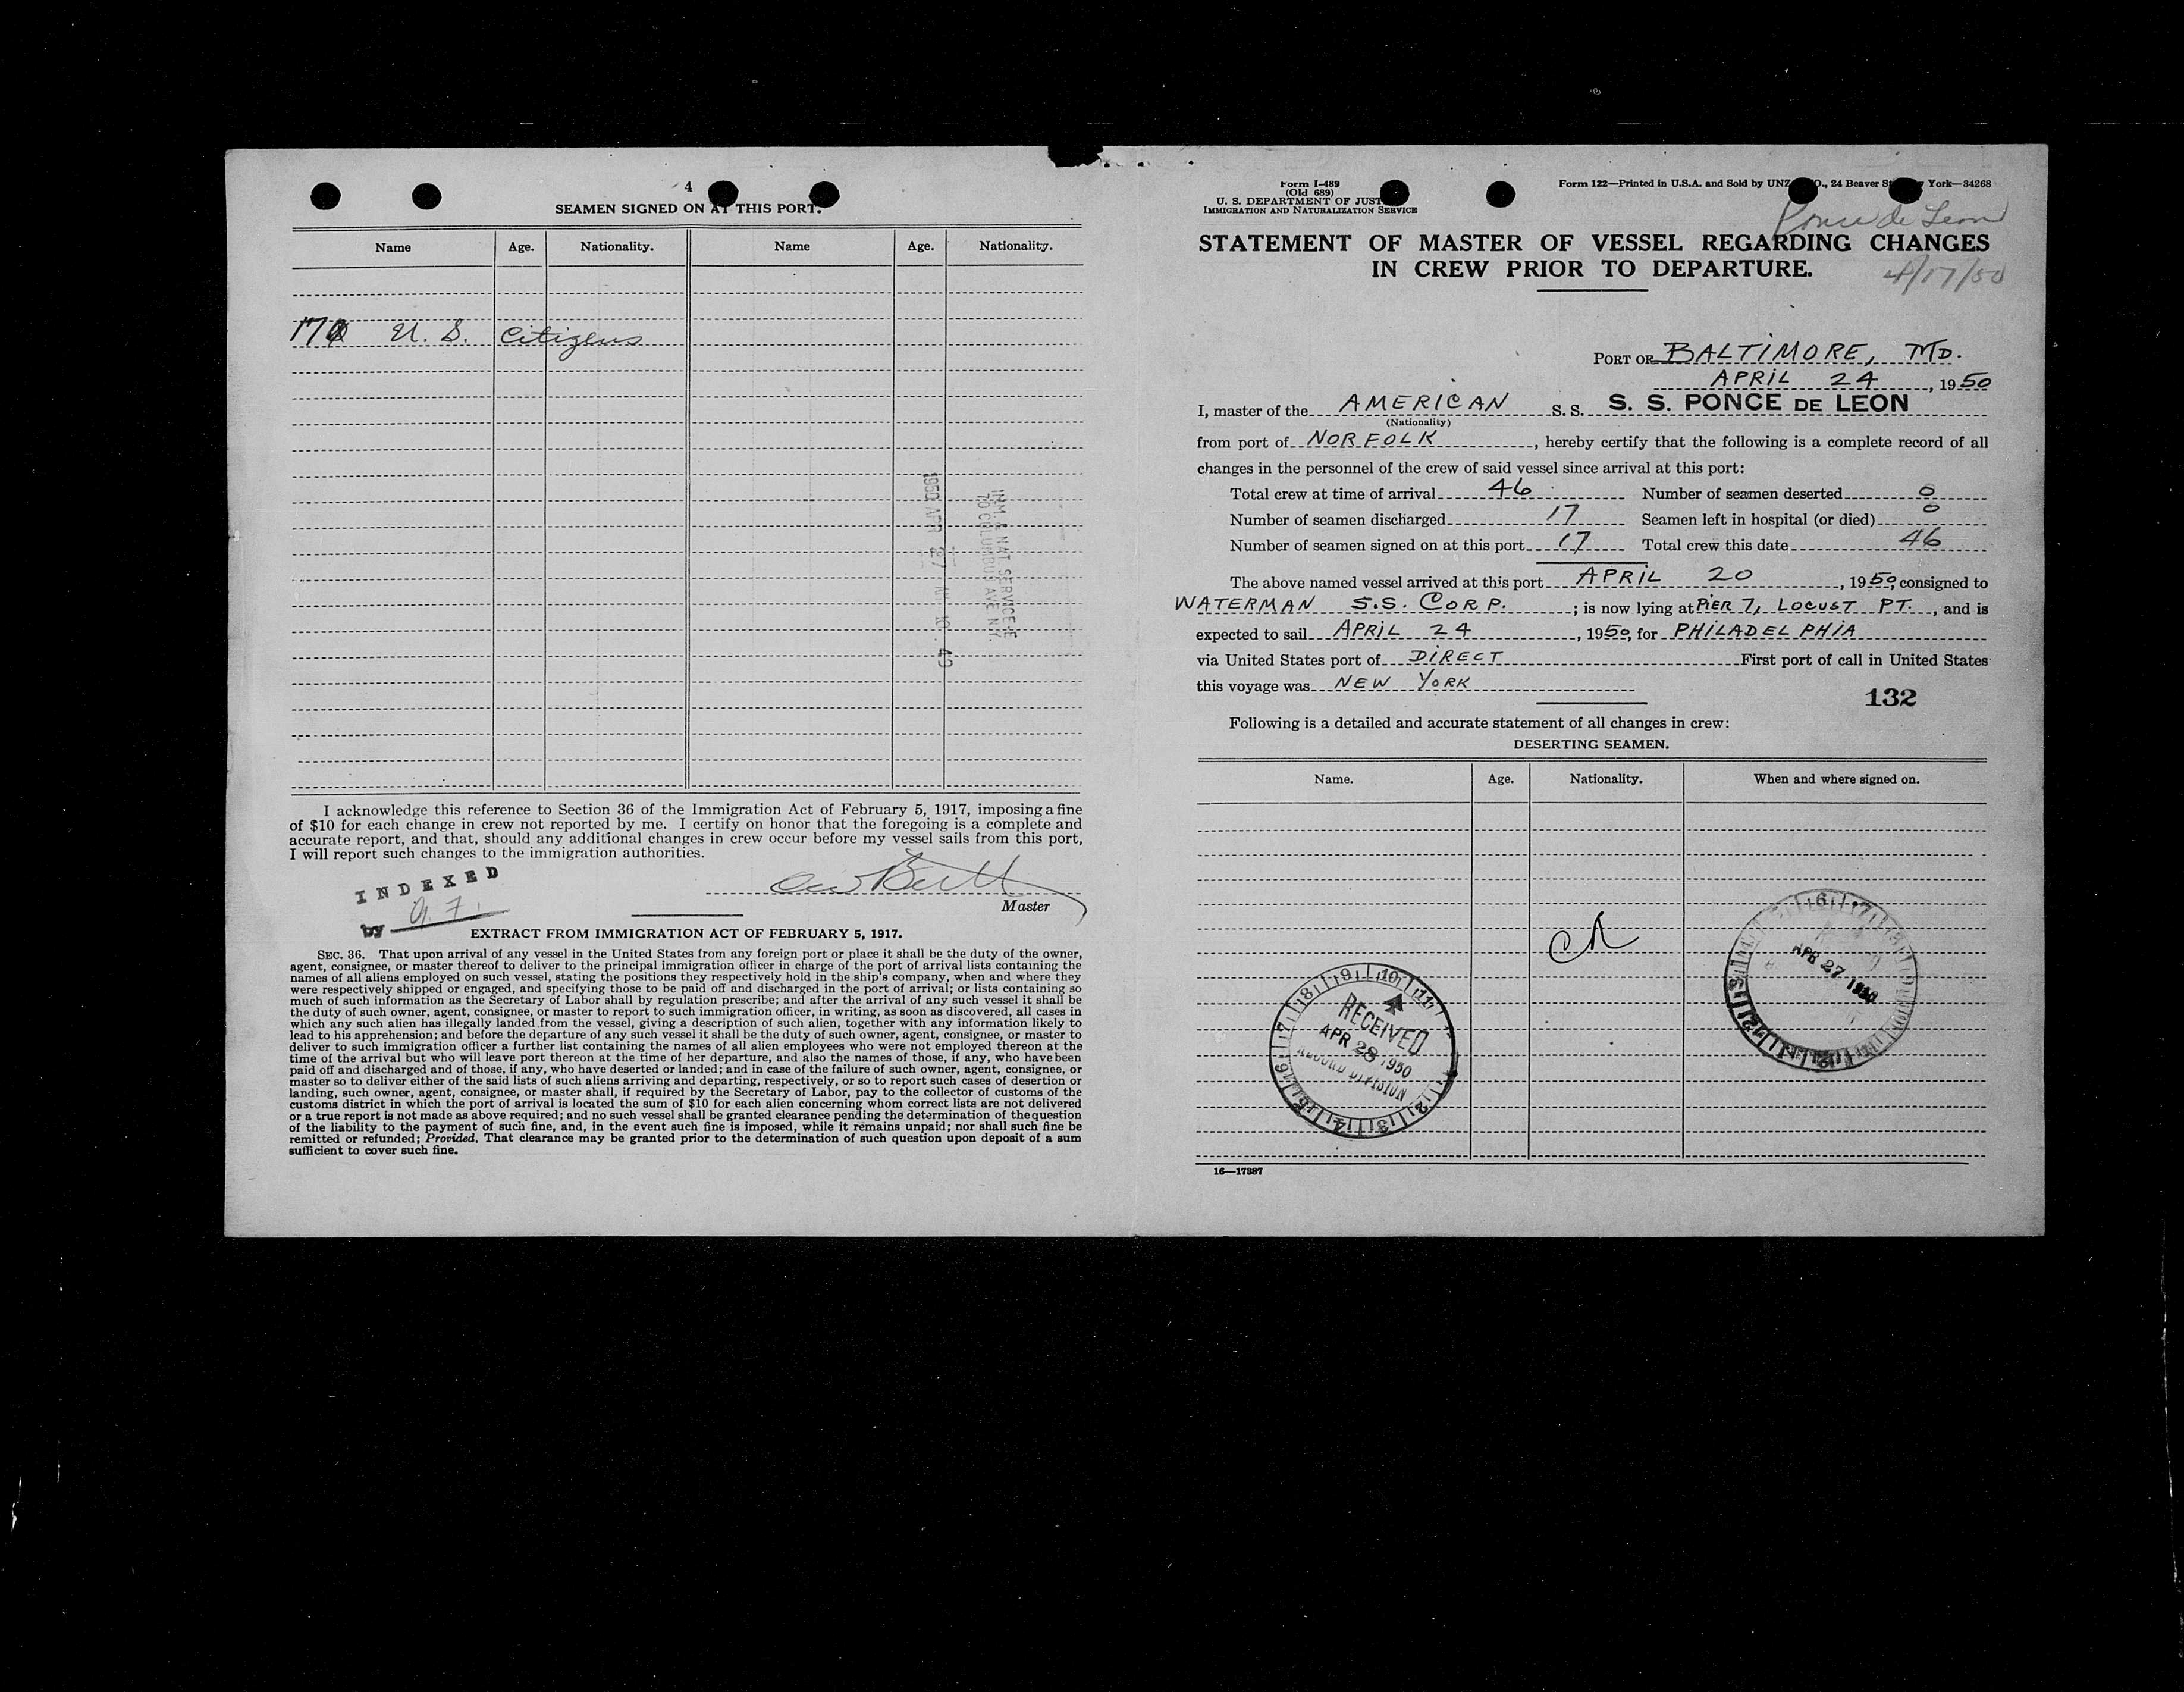 4
SEAMEN SIGNED ON AT THIS PORT.
Name Age. Nationality. Name Age. Nationality.
17 U. S. Citizens
1950 APR 27 AM 10 49
IMM. & NAT SERVICE
70 COLUMBUS AVE N.Y.
I acknowledge this reference to Section 36 of the Immigration Act of February 5, 1917, imposing a fine
of $10 for each change in crew not reported by me. I certify on honor that the foregoing is a complete and
accurate report, and that, should any additional changes in crew occur before my vessel sails from this port,
I will report such changes to the immigration authorities.
INDEXED
by
Master
EXTRACT FROM IMMIGRATION ACT OF FEBRUARY 5, 1917.
SEC. 36. That upon arrival of any vessel in the United States from any foreign port or place it shall be the duty of the owner,
agent, consignee, or master thereof to deliver to the principal immigration officer in charge of the port of arrival lists containing the
names of all aliens employed on such vessel, stating the positions they respectively hold in the ship's company, when and where they
were respectively shipped or engaged, and specifying those to be paid off and discharged in the port of arrival; or lists containing so
much of such information as the Secretary of Labor shall by regulation prescribe; and after the arrival of any such vessel it shall be
the duty of such owner, agent, consignee, or master to report to such immigration officer, in writing, as soon as discovered, all cases in
which any such alien has illegally landed from the vessel, giving a description of such alien, together with any information likely to
lead to his apprehension; and before the departure of any such vessel it shall be the duty of such owner, agent, consignee, or master to
deliver to such immigration officer a further list containing the names of all alien employees who were not employed thereon at the
time of the arrival but who will leave port thereon at the time of her departure, and also the names of those, if any, who have been
paid off and discharged and of those, if any, who have deserted or landed; and in case of the failure of such owner, agent, consignee, or
master so to deliver either of the said lists of such aliens arriving and departing, respectively, or so to report such cases of desertion or
landing, such owner, agent, consignee, or master shall, if required by the Secretary of Labor, pay to the collector of customs of the
customs district in which the port of arrival is located the sum of $10 for each alien concerning whom correct lists are not delivered
or a true report is not made as above required; and no such vessel shall be granted clearance pending the determination of the question
of the liability to the payment of such fine, and, in the event such fine is imposed, while it remains unpaid; nor shall such fine be
remitted or refunded; Provided, That clearance may be granted prior to the determination of such question upon deposit of a sum
sufficient to cover such fine.
Form I-489
(Old 689)
U. S. DEPARTMENT OF JUST
IMMIGRATION AND NATURALIZATION SERVICE
Form 122—Printed in U.S.A. and Sold by UNZ O., 24 Beaver St York—34268
Ponce de Leon
STATEMENT OF MASTER OF VESSEL REGARDING CHANGES
IN CREW PRIOR TO DEPARTURE.
4/17/50
PORT OF BALTIMORE, MD.
APRIL 24, 1950
I, master of the AMERICAN S. S. S. S. PONCE DE LEON
(Nationality)
from port of NORFOLK, hereby certify that the following is a complete record of all
changes in the personnel of the crew of said vessel since arrival at this port:
Total crew at time of arrival 46 Number of seamen deserted 0
Number of seamen discharged 17 Seamen left in hospital (or died) 0
Number of seamen signed on at this port 17 Total crew this date 46
The above named vessel arrived at this port APRIL 20, 1950, consigned to
WATERMAN S.S. CORP. ; is now lying at PIER 7, LOCUST PT., and is
expected to sail APRIL 24, 1950, for PHILADELPHIA
via United States port of DIRECT First port of call in United States
this voyage was NEW YORK
132
Following is a detailed and accurate statement of all changes in crew:
DESERTING SEAMEN.
Name. Age. Nationality. When and where signed on.
APR 27 1950
RECEIVED
APR 28 1950
RECORD DIVISION
16—17887